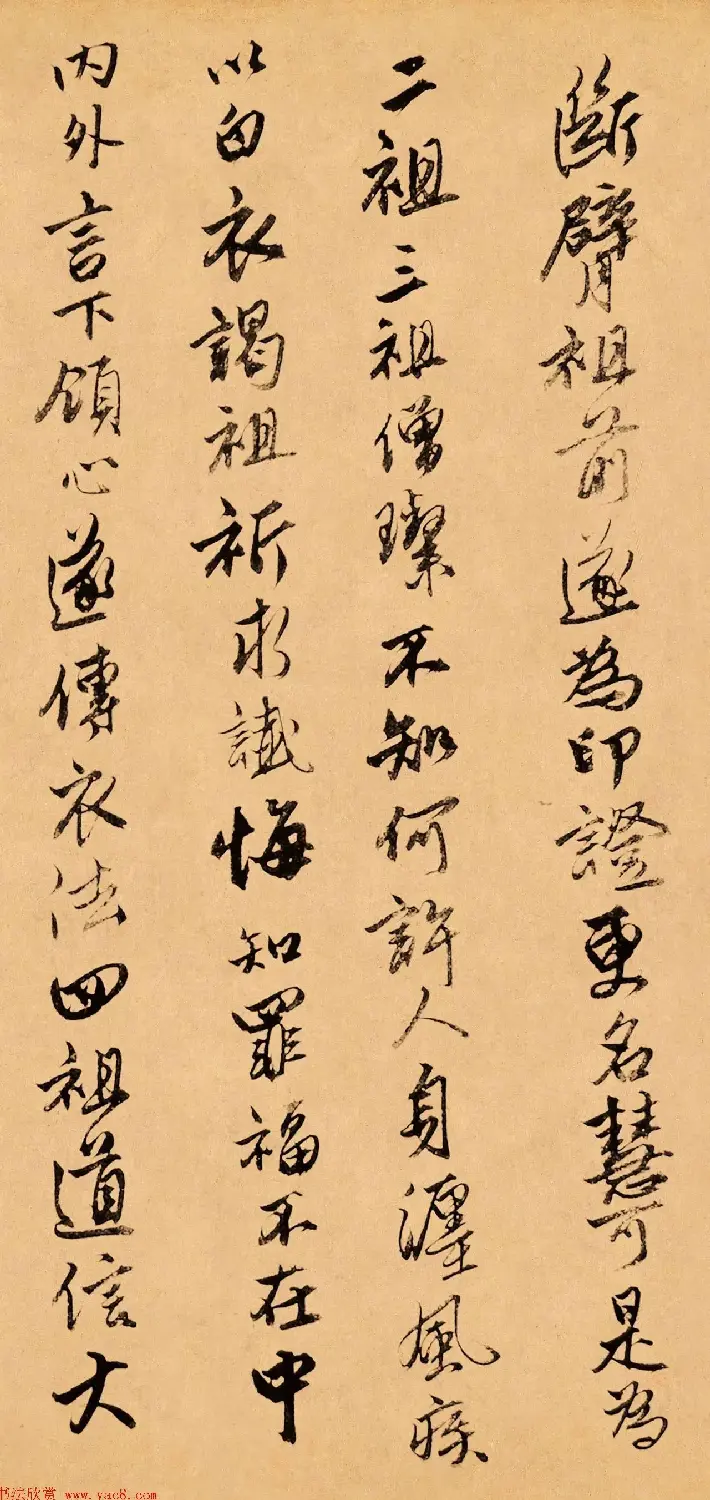 斷臂祖前遂為印證更名慧可是為
二祖三祖僧璨不知何許人身瀍風疾
以白衣謁祖祈求懺悔知罪福不在中
內外言下領心遂傳衣法四祖道信大
书法欣赏 www.yac8.com